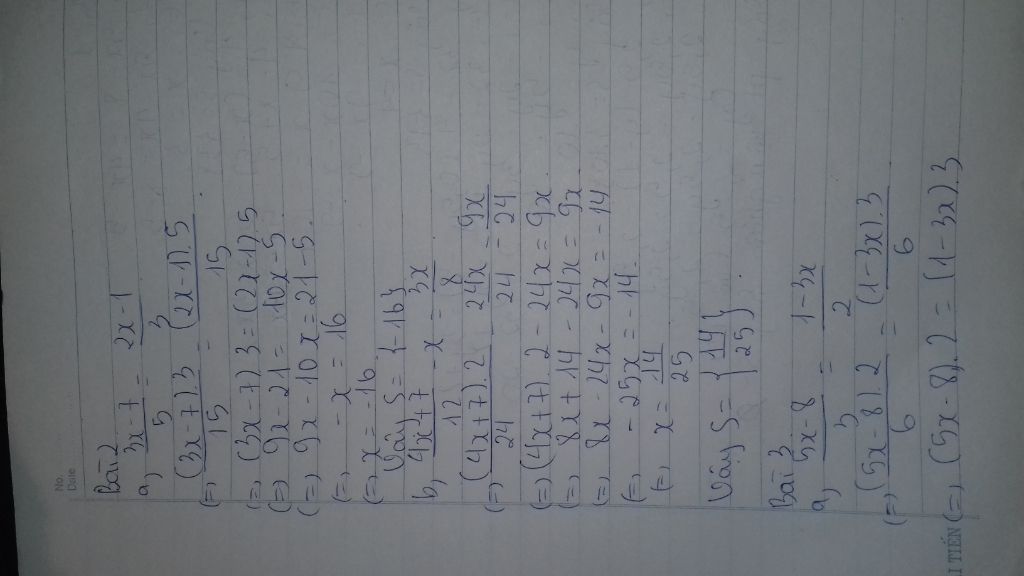 No.
Date
Bài 2
a, 3x-7/5 = 2x-1/3
(=) (3x-7).3/15 = (2x-1).5/15
(=) (3x-7)3=(2x-1).5
(=) 9x-21 = 10x-5
(=) 9x-10x=21-5.
(=) -x = 16
(=) x=-16
Vậy S={-16}
b, 4x+7/12 - x = 3x/8
(=) (4x+7).2/24 - 24x/24 = 9x/24
(=) (4x+7).2-24x=9x
(=) 8x+14-24x=9x
(=) 8x-24x-9x=-14
(=) -25x=-14
(=) x=14/25
Vậy S={14/25}.
Bài 3
a, 5x-8/3 = 1-3x/2
(=) (5x-8).2/6 = (1-3x).3/6
(=) (5x-8).2=(1-3x).3
I TIẾN